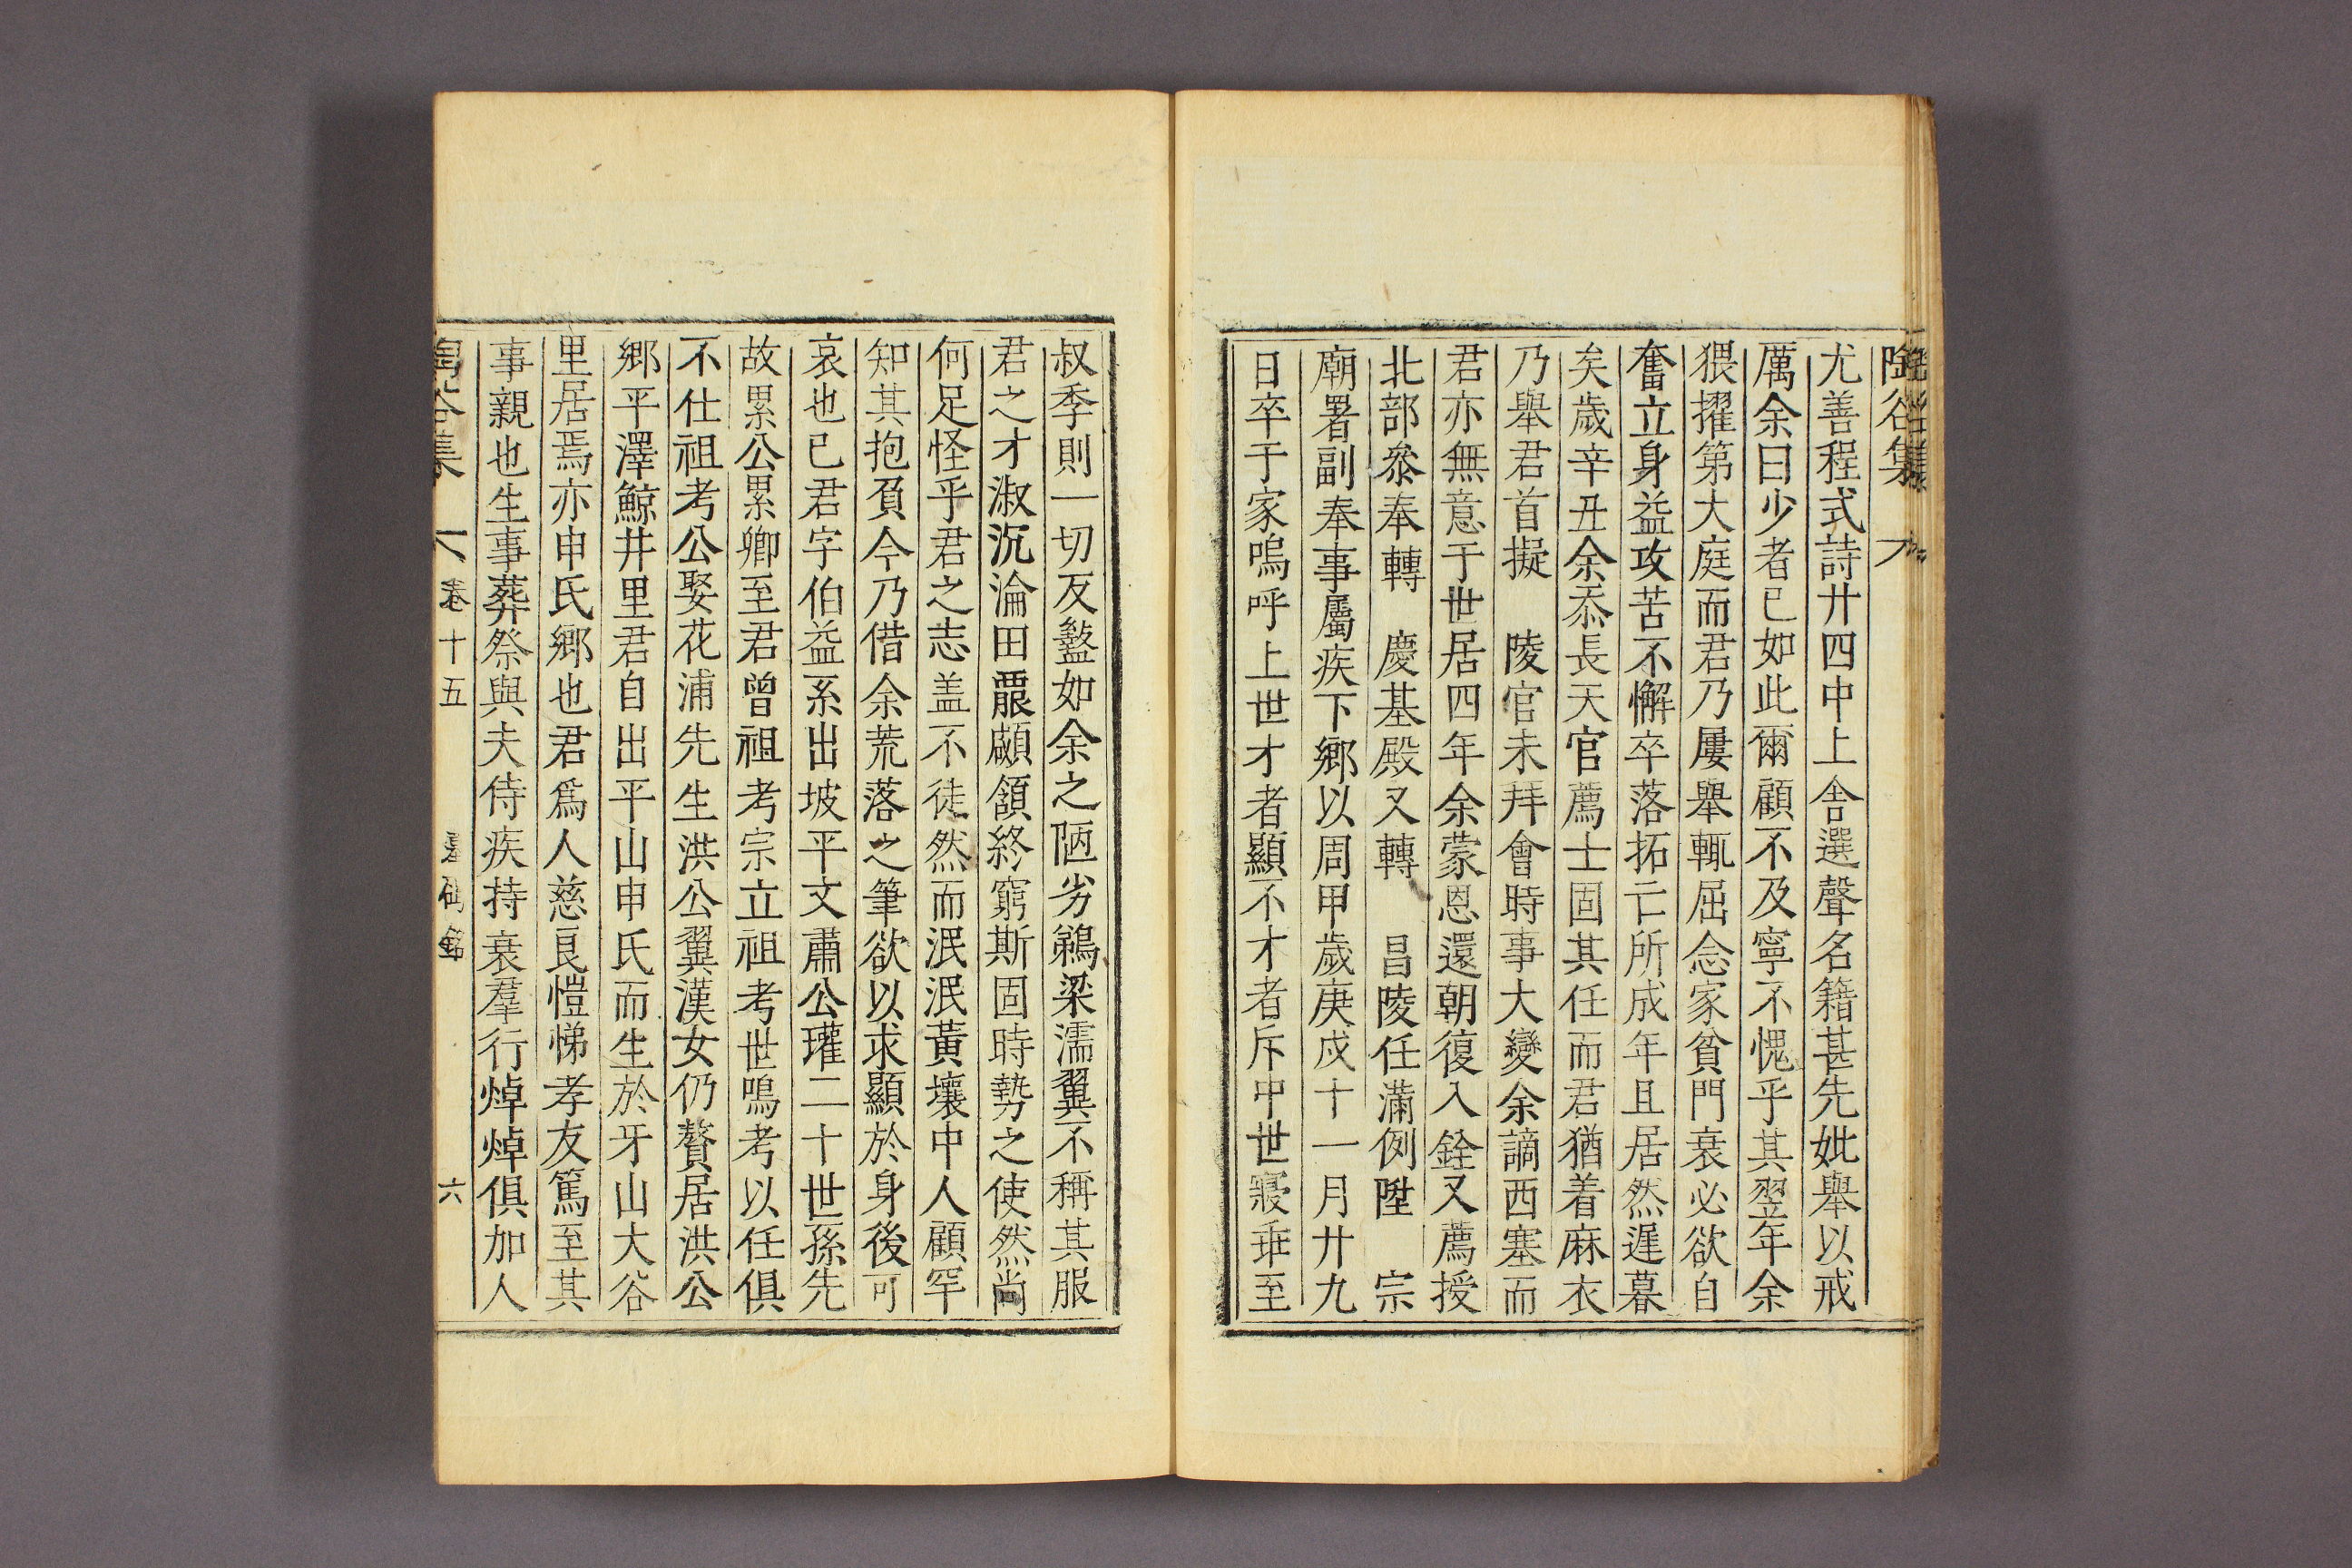 陶谷集
尤善程式詩廿四中上舍選聲名籍甚先妣舉以戒
厲余曰少者已如此爾顧不及寧不愧乎其翌年余
猥擢第大庭而君乃屢舉輒屈念家貧門衰必欲自
奮立身益攻苦不懈卒落拓亡所成年且居然遲暮
矣歲辛丑余忝長天官薦士固其任而君猶着麻衣
乃舉君首擬 陵官未拜會時事大變余謫西塞而
君亦無意于世居四年余蒙恩還朝復入銓又薦授
北部參奉轉 慶基殿又轉 昌陵任滿例陞 宗
廟署副奉事屬疾下鄉以周甲歲庚戌十一月廿九
日卒于家嗚呼上世才者顯不才者斥中世寢乖至
叔季則一切反盭如余之陋劣鵜梁濡翼不稱其服
君之才淑沉淪田罷顑頷終窮斯固時勢之使然尚
何足怪乎君之志盖不徒然而泯泯黃壤中人顧罕
知其抱負今乃借余荒落之筆欲以求顯於身後可
哀也已君字伯益系出坡平文肅公瓘二十世孫先
故累公累卿至君曾祖考宗立祖考世鳴考以任俱
不仕祖考公娶花浦先生洪公翼漢女仍贅居洪公
鄉平澤鯨井里君自出平山申氏而生於牙山大谷
里居焉亦申氏鄉也君爲人慈良愷悌孝友篤至其
事親也生事葬祭與夫侍疾持衰羣行焯焯俱加人
陶谷集 卷十五 墓碣銘 六